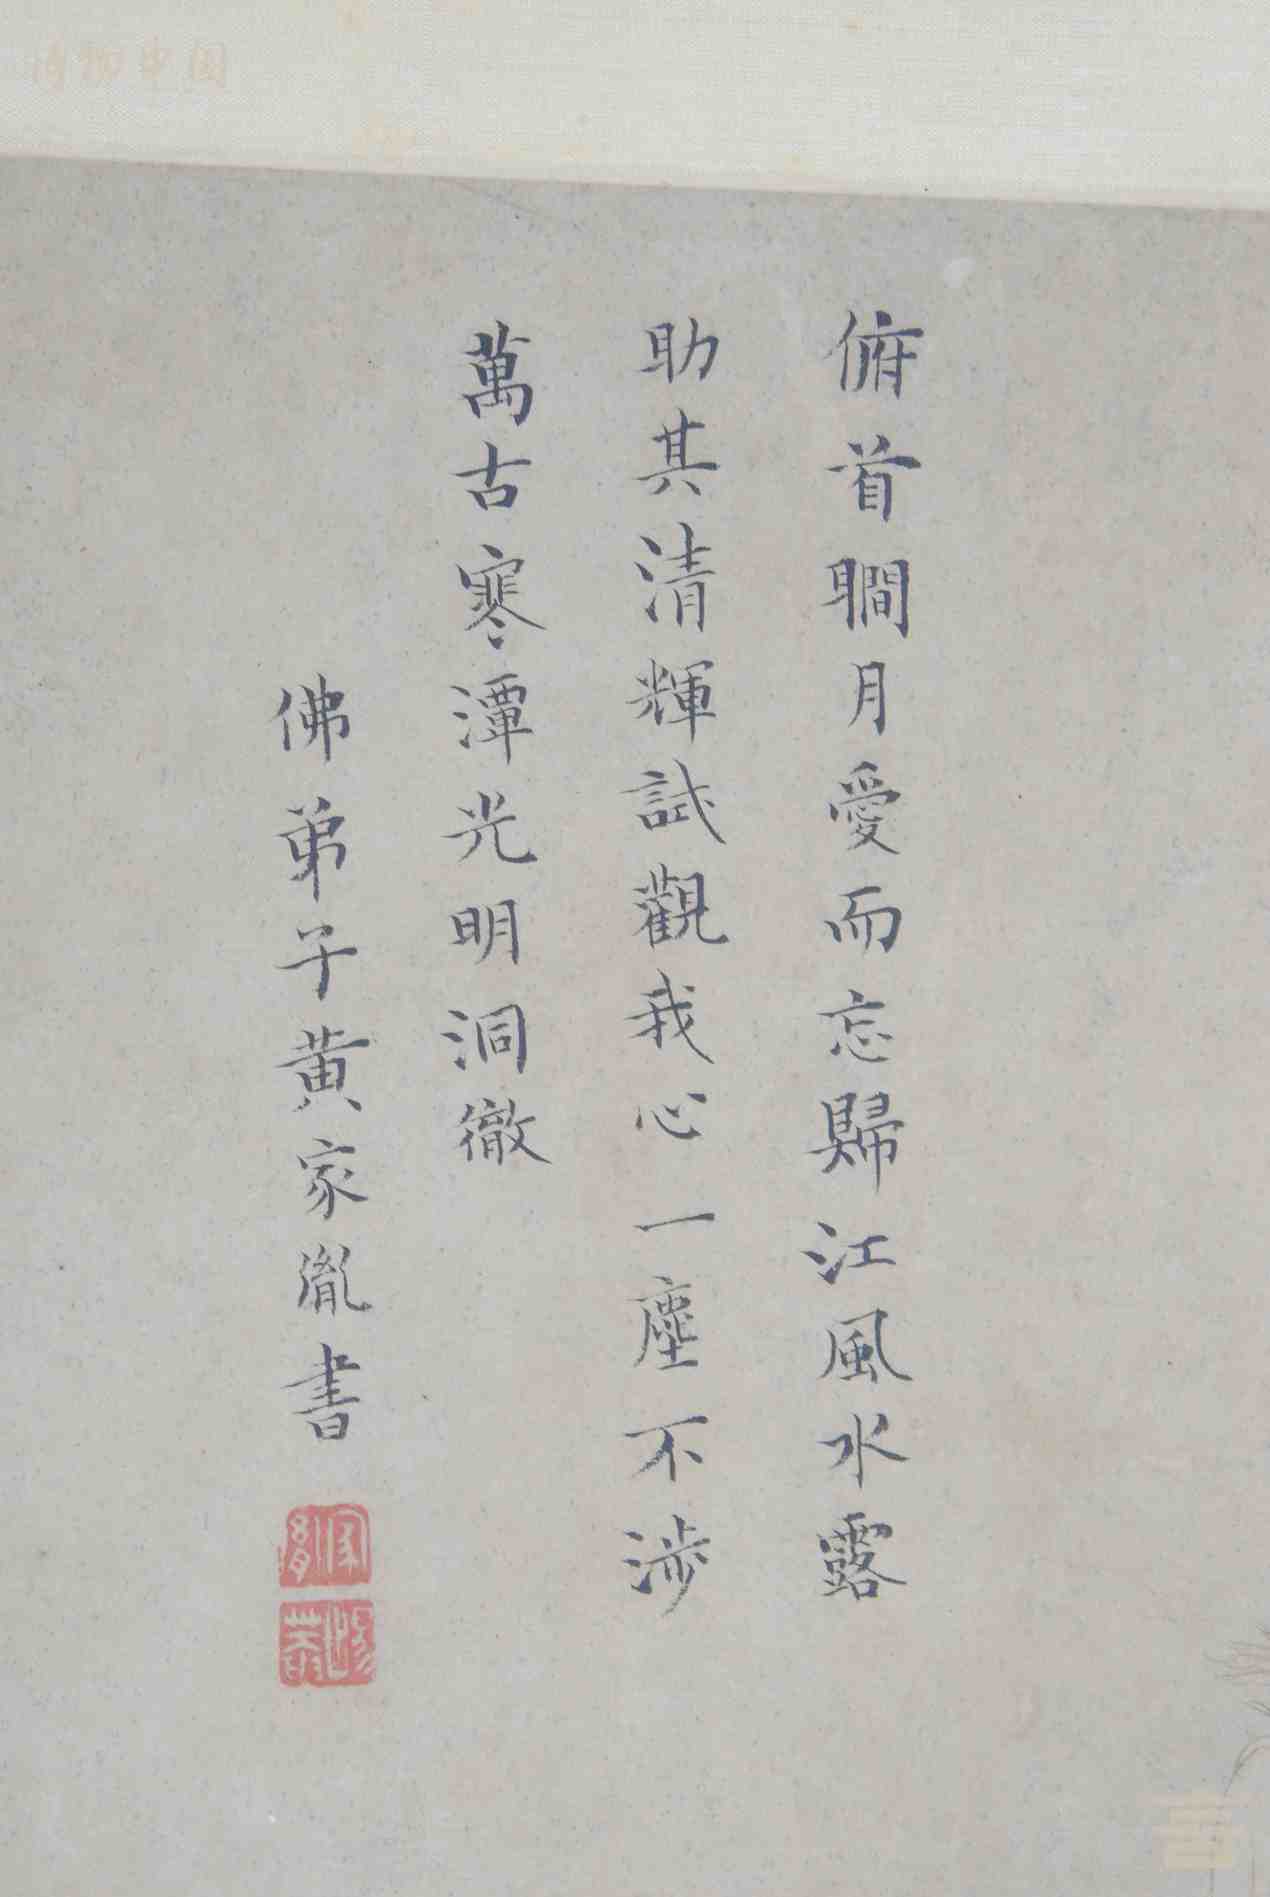 俯首瞷月愛而忘歸江風水露
助其清輝試觀我心一塵不涉
萬古寒潭光明洞徹
佛弟子黄家胤書